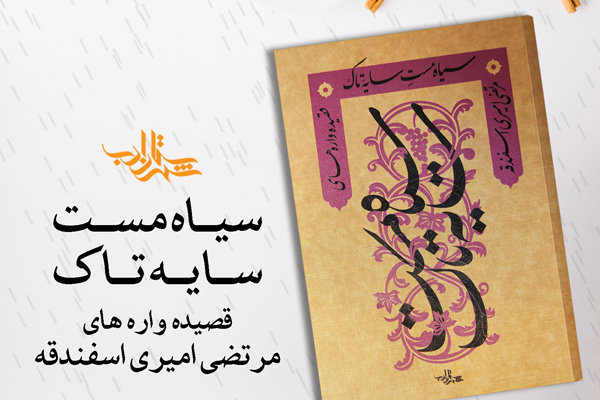 شهرستان ادب
سیاه مست
سایه تاک
قصیده واره های
مرتضی امیری اسفندقه
سیاه مستِ سایه تاک
قصیده واره های
مرتضی امیری اسفندقه
سیاه مست
سایه تاک
شهرستان ادب